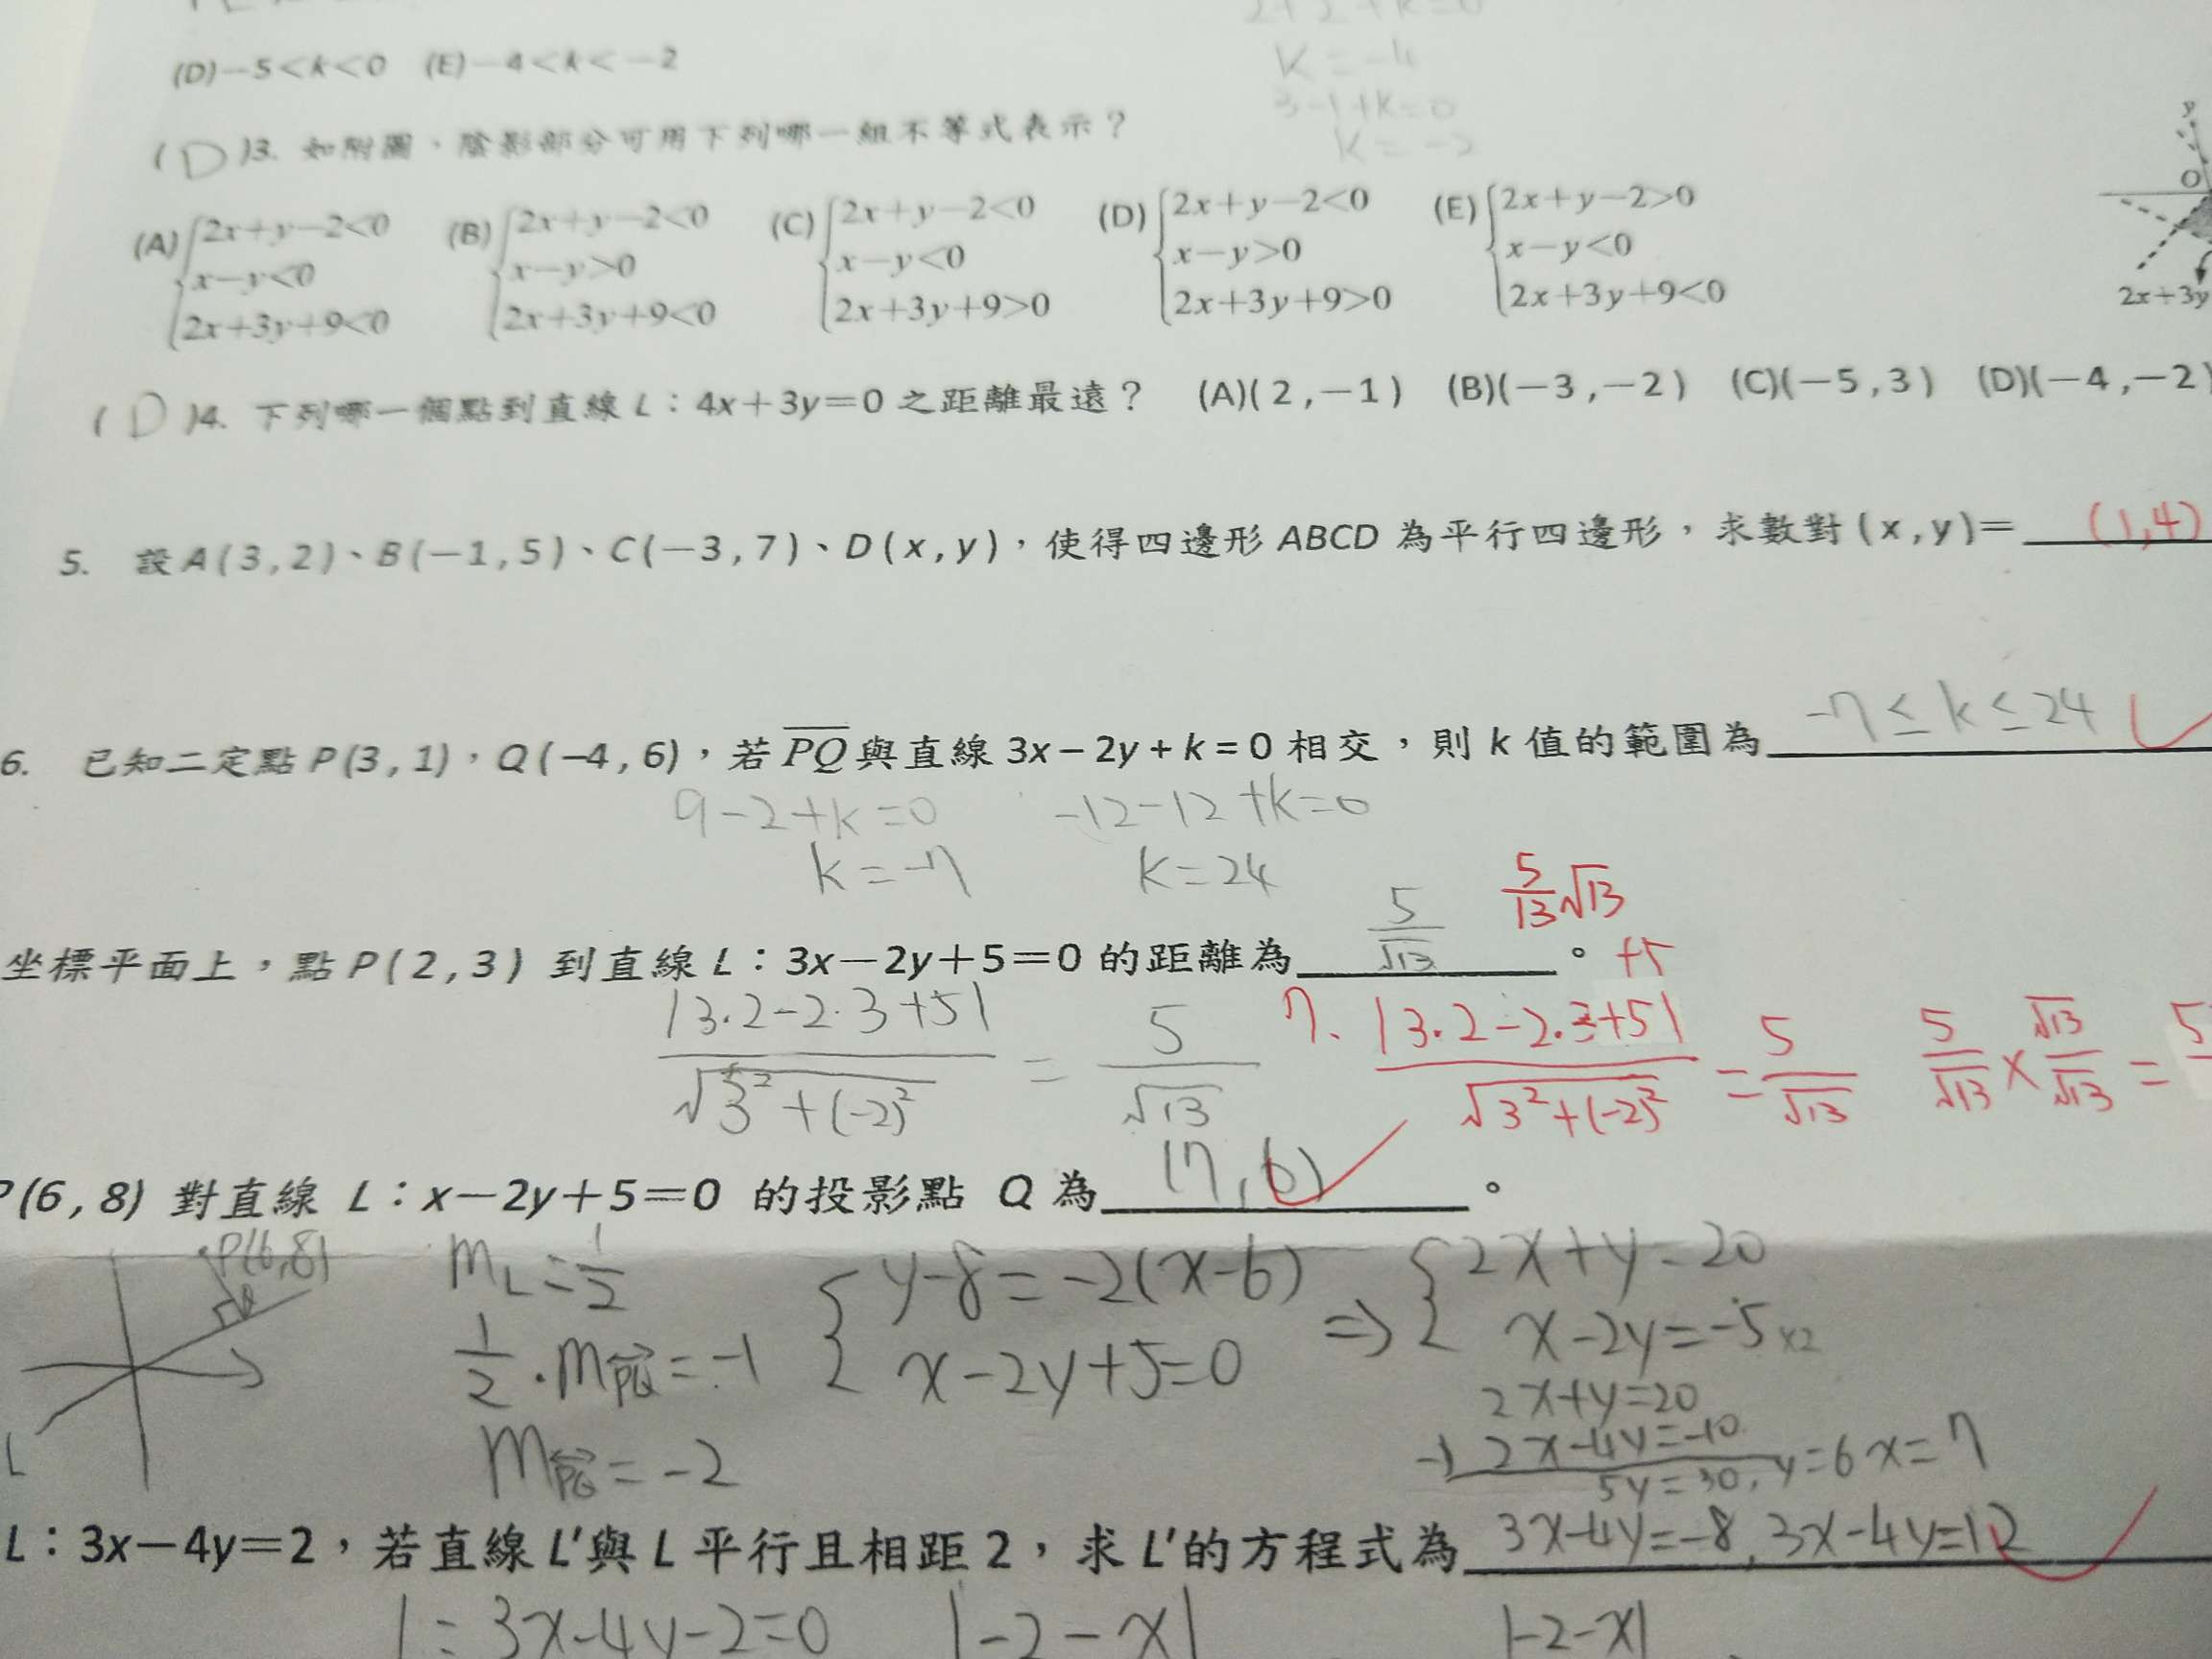 2+2+k=0
(D)－5＜k＜0 (E)－4＜k＜－2
K=-4
3-1+k=0
K=-2
(D)3. 如附圖，陰影部分可用下列哪一組不等式表示？
y
O
2x+3y
(A){2x+y－2<0 (B){2x+y－2<0 (C){2x+y－2<0 (D){2x+y－2<0 (E){2x+y－2>0
x－y<0 x－y>0 x－y<0 x－y>0 x－y<0
2x+3y+9<0 2x+3y+9<0 2x+3y+9>0 2x+3y+9>0 2x+3y+9<0
(D)4. 下列哪一個點到直線 L：4x+3y=0 之距離最遠？ (A)(2,－1) (B)(－3,－2) (C)(－5,3) (D)(－4,－2)
5. 設 A(3,2)、B(－1,5)、C(－3,7)、D(x,y)，使得四邊形 ABCD 為平行四邊形，求數對(x,y)= (1,4)
6. 已知二定點 P(3,1)，Q(－4,6)，若 \overline{PQ} 與直線 3x－2y+k=0 相交，則 k 值的範圍為 -7≤k≤24
9-2+k=0 -12-12+k=0
k=-7 k=24
坐標平面上，點 P(2,3) 到直線 L：3x－2y+5=0 的距離為 5/√13 。 5/13√13 +5
|3.2-2.3+5|/√3²+(-2)² = 5/√13 7、|3.2-2.3+5|/√3²+(-2)² = 5/√13 5/√13 × √13/√13 = 5
P(6,8) 對直線 L：x－2y+5=0 的投影點 Q 為 (7,6) 。
P(6,8)
L
m_L=1/2 {y-8=-2(x-6) => {2x+y=20
1/2·m_PQ=-1 x-2y+5=0 x-2y=-5 ×2
m_PQ=-2 2x+y=20
-) 2x-4y=-10
5y=30, y=6 x=7
L：3x－4y=2，若直線 L'與 L 平行且相距 2，求 L'的方程式為 3x-4y=-8, 3x-4y=12
L=3x-4y-2=0 |-2-x| |-2-x|